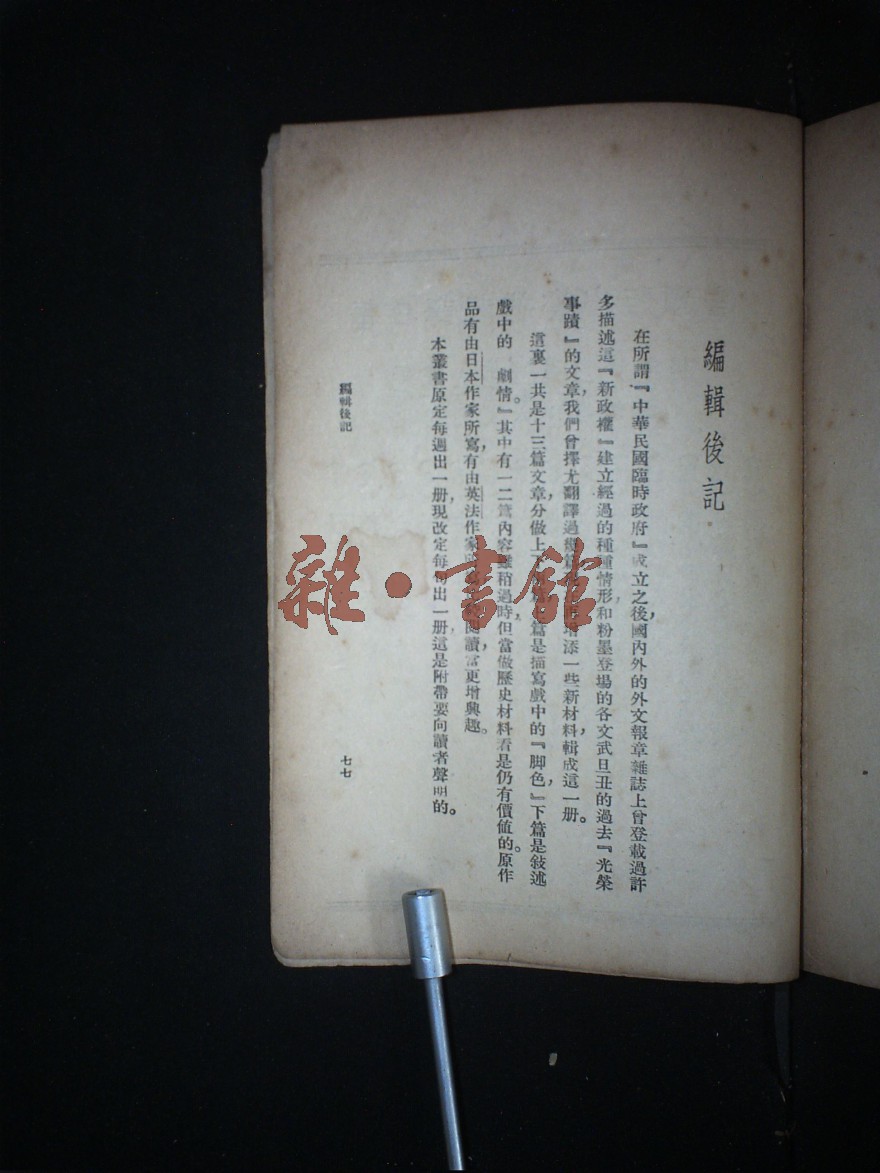 編輯後記
在所謂『中華民國臨時政府』成立之後,國內外的外文報章雜誌上曾登載過許
多描述這『新政權』建立經過的種種情形,和粉墨登場的各文武旦丑的過去『光榮
事蹟』的文章,我們曾擇尤翻譯過幾篇 增添一些新材料,輯成這一册。
這裏一共是十三篇文章,分做上 篇是描寫戲中的『脚色』,下篇是敍述
戲中的 劇情』。其中有一二篇內容雖稍過時,但當做歷史材料看,是仍有價值的。原作
品有由日本作家所寫,有由英法作家 閱讀,當更增興趣。
本叢書原定每週出一册,現改定每旬出一册,這是附帶要向讀者聲明的。
編輯後記
七七
雜·書館